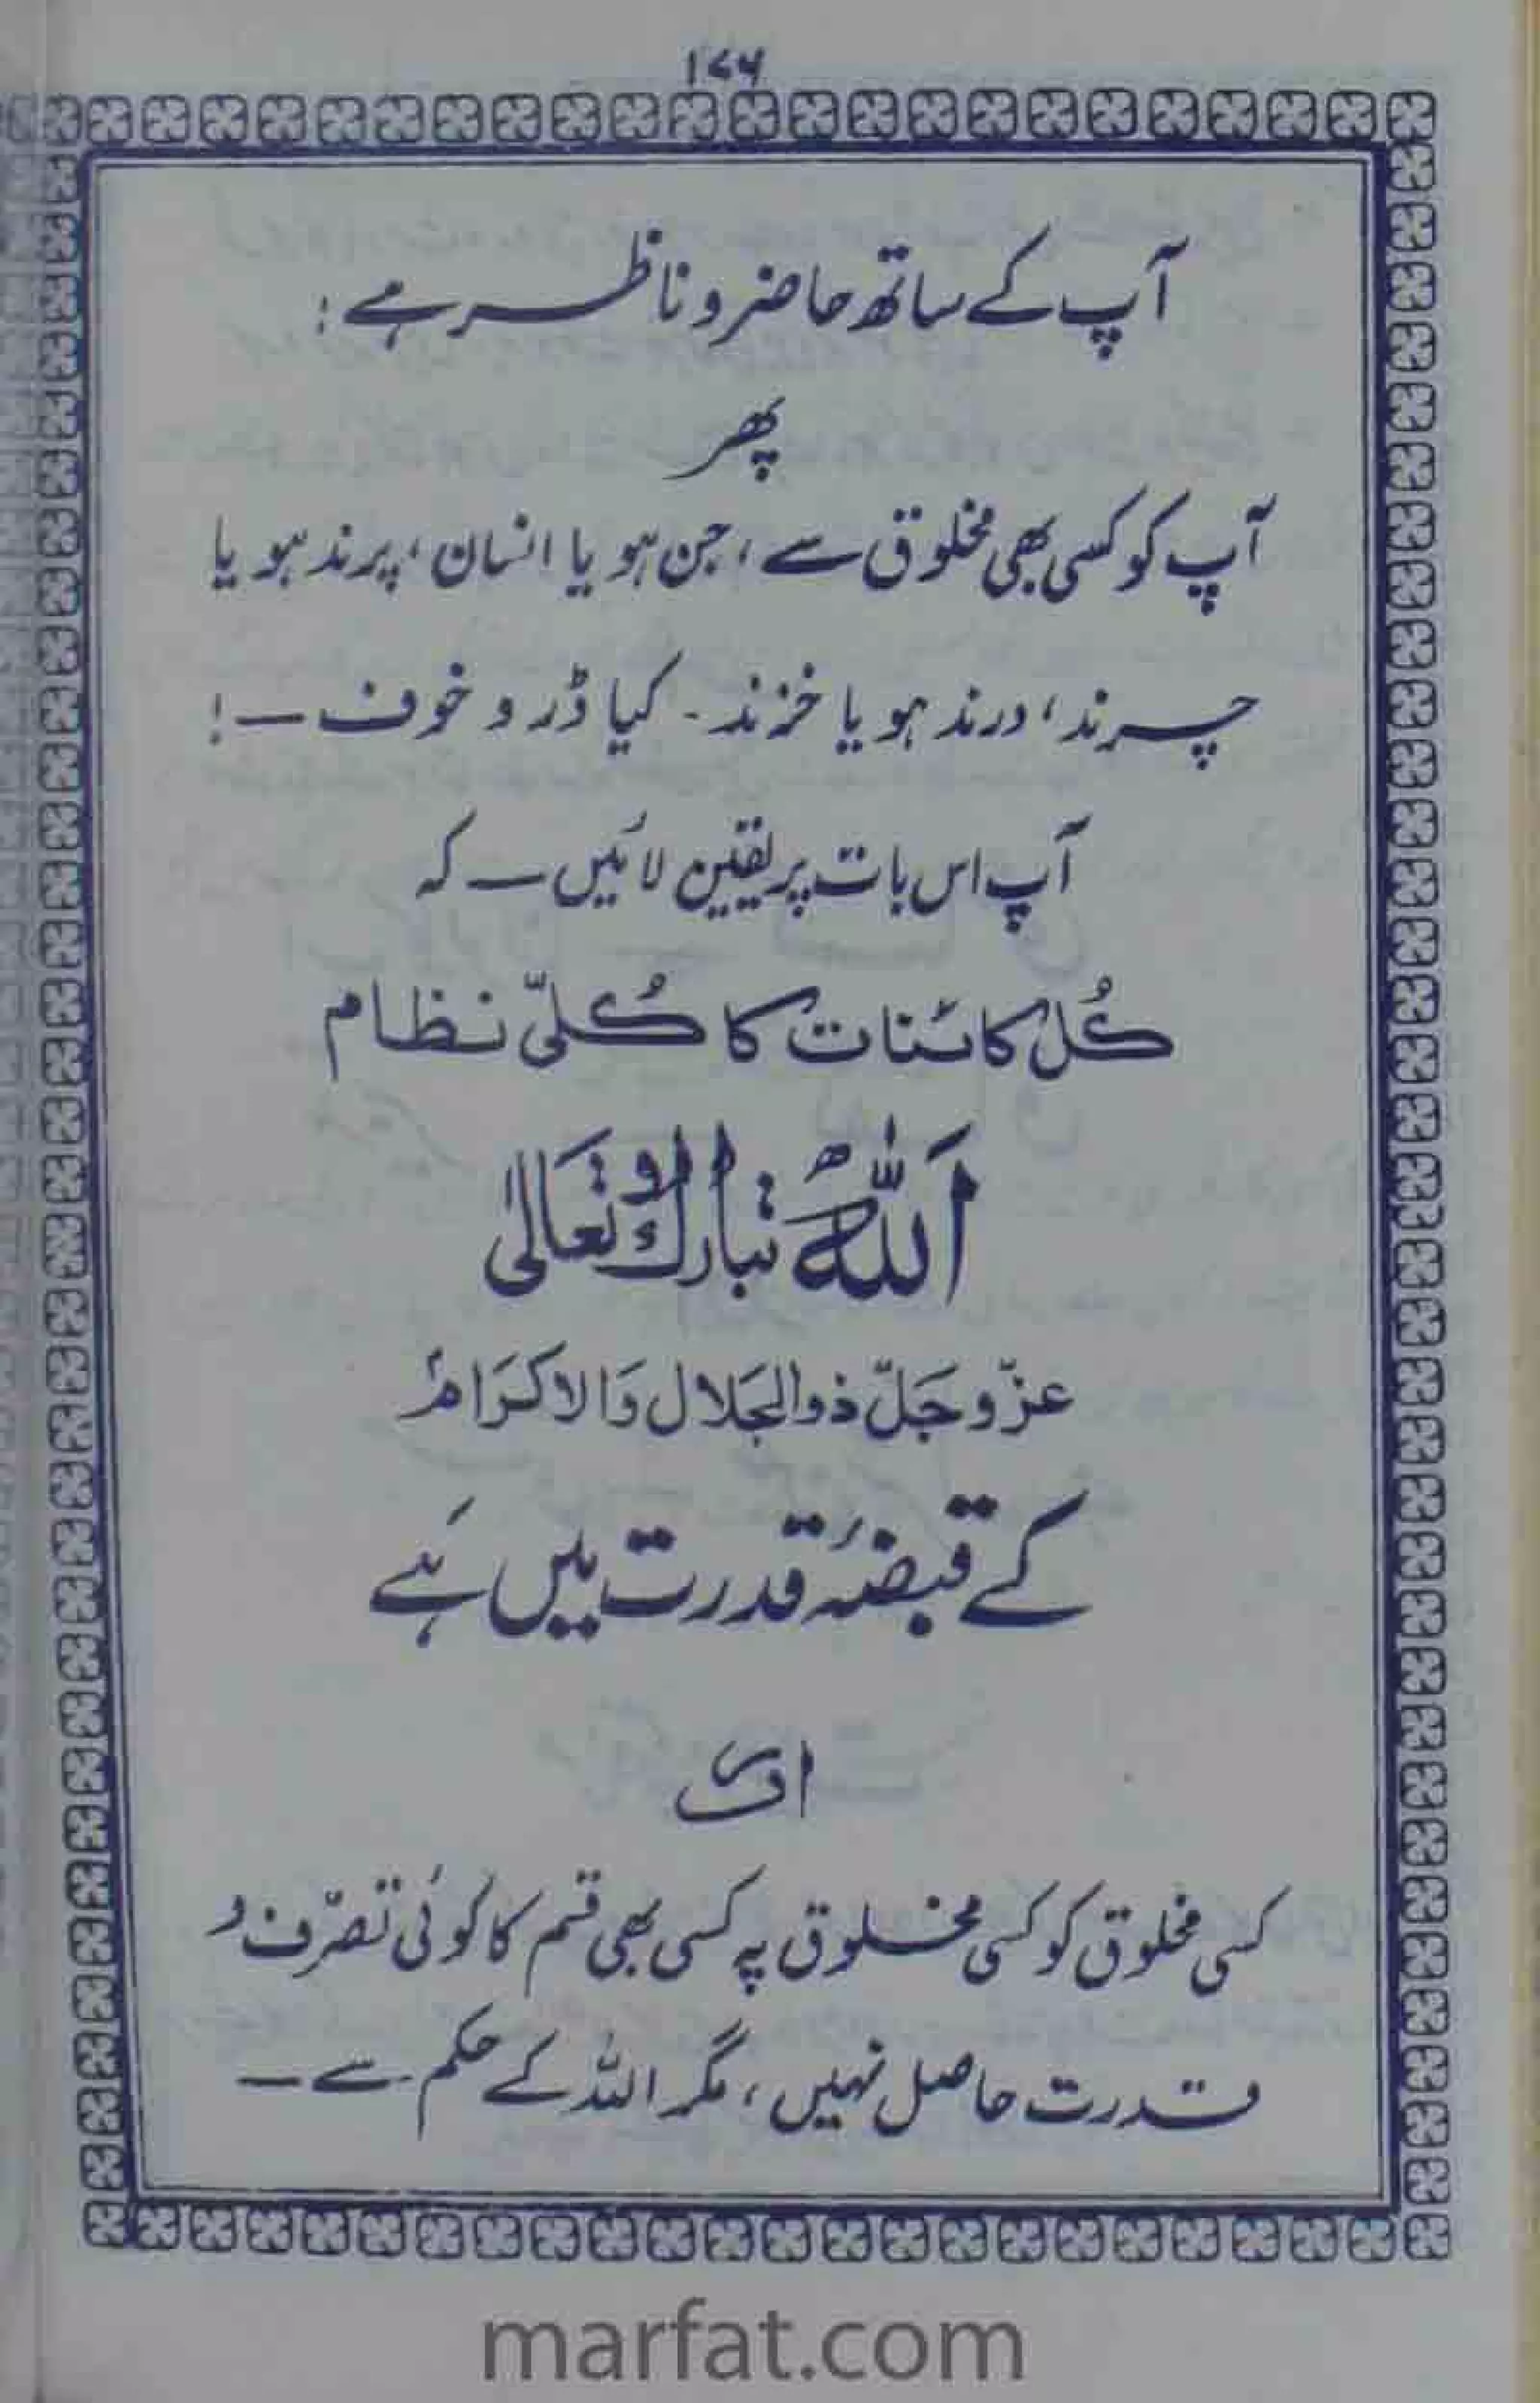 ۱۷۶
آپ کے ساتھ حاضر و ناظر ہے :
پھر
آپ کو کسی بھی مخلوق سے ، جن ہو یا انسان ، پرند ہو یا
چرند ، درند ہو یا خزند ۔ کیا ڈر و خوف — !
آپ اس بات پر یقین لائیں — کہ
کُل کائنات کا کُلّی نظام
اَللّٰهُ تبارک وتعَالیٰ
عزّ و جَلّ ذوالجَلال وَالاکرَام
کے قبضۂ قدرت میں ہَے
اور
کسی مخلوق کو کسی مخلوق پہ کسی بھی قسم کا کوئی تصرّف و
قدرت حاصل نہیں ، مگر اللہ کے حکم سے —
marfat.com